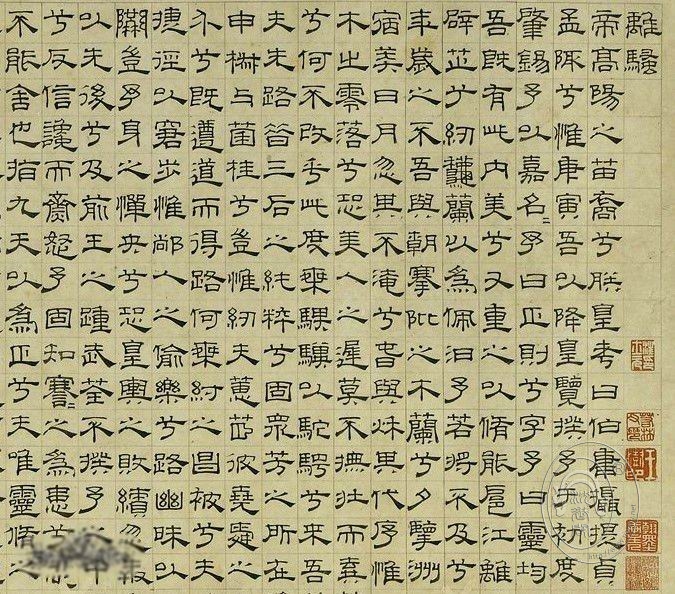 離騷
帝高陽之苗裔兮朕皇考曰伯庸攝提貞
孟陬兮惟庚寅吾以降皇覽揆予于初度
肇錫予以嘉名〻予曰正則兮字予曰靈均
吾既有此內美兮又重之以脩能扈江離
辟芷兮紉秋蘭以為佩汩予若將不及兮
年歲之不吾與朝搴阰之木蘭兮夕擥洲
宿莽日月忽其不淹兮春與秋其代序惟
木之零落兮恐美人之遲莫不撫壯而棄
兮何不改乎此度乘騏驥以駝騁兮來吾
夫先路昔三后之純粹兮固眾芳之所在
申椒與菌桂兮豈惟紉夫蕙茝彼堯舜之
介兮既遵道而得路何桀紂之昌被兮夫
捷徑以窘步惟人之偷樂兮路幽昧以
豈予身之憚央兮恐皇輿之敗績忽
以先後兮及前王之踵武荃不揆予之中
兮反信讒而齌怒予固知謇〻之為患兮
不能舍也指九天以為正兮夫唯靈脩之